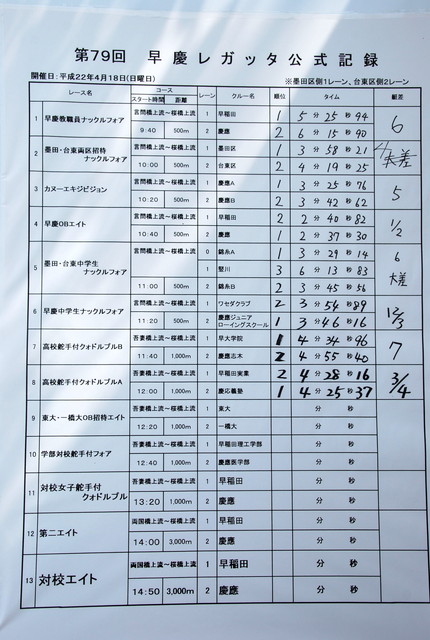 第79回 早慶レガッタ公式記録
開催日：平成22年4月18日(日曜日) ※墨田区側1レーン、台東区側2レーン
レース名 コース レーン クルー名 順位 タイム 艇差
スタート時間 距離
1 早慶教職員ナックルフォア 言問橋上流～桜橋上流 1 早稲田 1 5分25秒94 6
9:40 500m 2 慶應 2 6分15秒90
2 墨田・台東両区招待 ナックルフォア 言問橋上流～桜橋上流 1 墨田区 1 3分58秒21 大差
10:00 500m 2 台東区 2 4分19秒25
3 カヌーエキジビジョン 言問橋上流～桜橋上流 1 慶應A 1 3分25秒76 5
10:20 500m 2 慶應B 2 3分42秒62
4 早慶OBエイト 言問橋上流～桜橋上流 1 早稲田 2 2分40秒82 1/2
10:40 500m 2 慶應 1 2分37秒30
5 墨田・台東中学生 ナックルフォア 言問橋上流～桜橋上流 0 錦糸A 1 3分29秒14 6
1 竪川 3 6分13秒83 大差
11:00 500m 2 錦糸B 2 3分45秒56
6 早慶中学生ナックルフォア 言問橋上流～桜橋上流 1 ワセダクラブ 2 3分54秒89
11:20 500m 2 慶應ジュニア ローイングスクール 1 3分46秒16
7 高校舵手付クォドルプルB 吾妻橋上流～桜橋上流 1 早大学院 1 4分34秒96 7
11:40 1,000m 2 慶應志木 2 4分55秒40
8 高校舵手付クォドルプルA 吾妻橋上流～桜橋上流 1 早稲田実業 2 4分28秒16 3/4
12:00 1,000m 2 慶応義塾 1 4分25秒37
9 東大・一橋大OB招待エイト 吾妻橋上流～桜橋上流 1 東大 分 秒
12:20 1,000m 2 一橋大 分 秒
10 学部対校舵手付フォア 吾妻橋上流～桜橋上流 1 早稲田理工学部 分 秒
12:40 1,000m 2 慶應医学部 分 秒
11 対校女子舵手付 クォドルプル 吾妻橋上流～桜橋上流 1 早稲田 分 秒
13:20 1,000m 2 慶應 分 秒
12 第二エイト 両国橋上流～桜橋上流 1 早稲田 分 秒
14:00 3,000m 2 慶應 分 秒
13 対校エイト 両国橋上流～桜橋上流 1 早稲田 分 秒
14:50 3,000m 2 慶應 分 秒